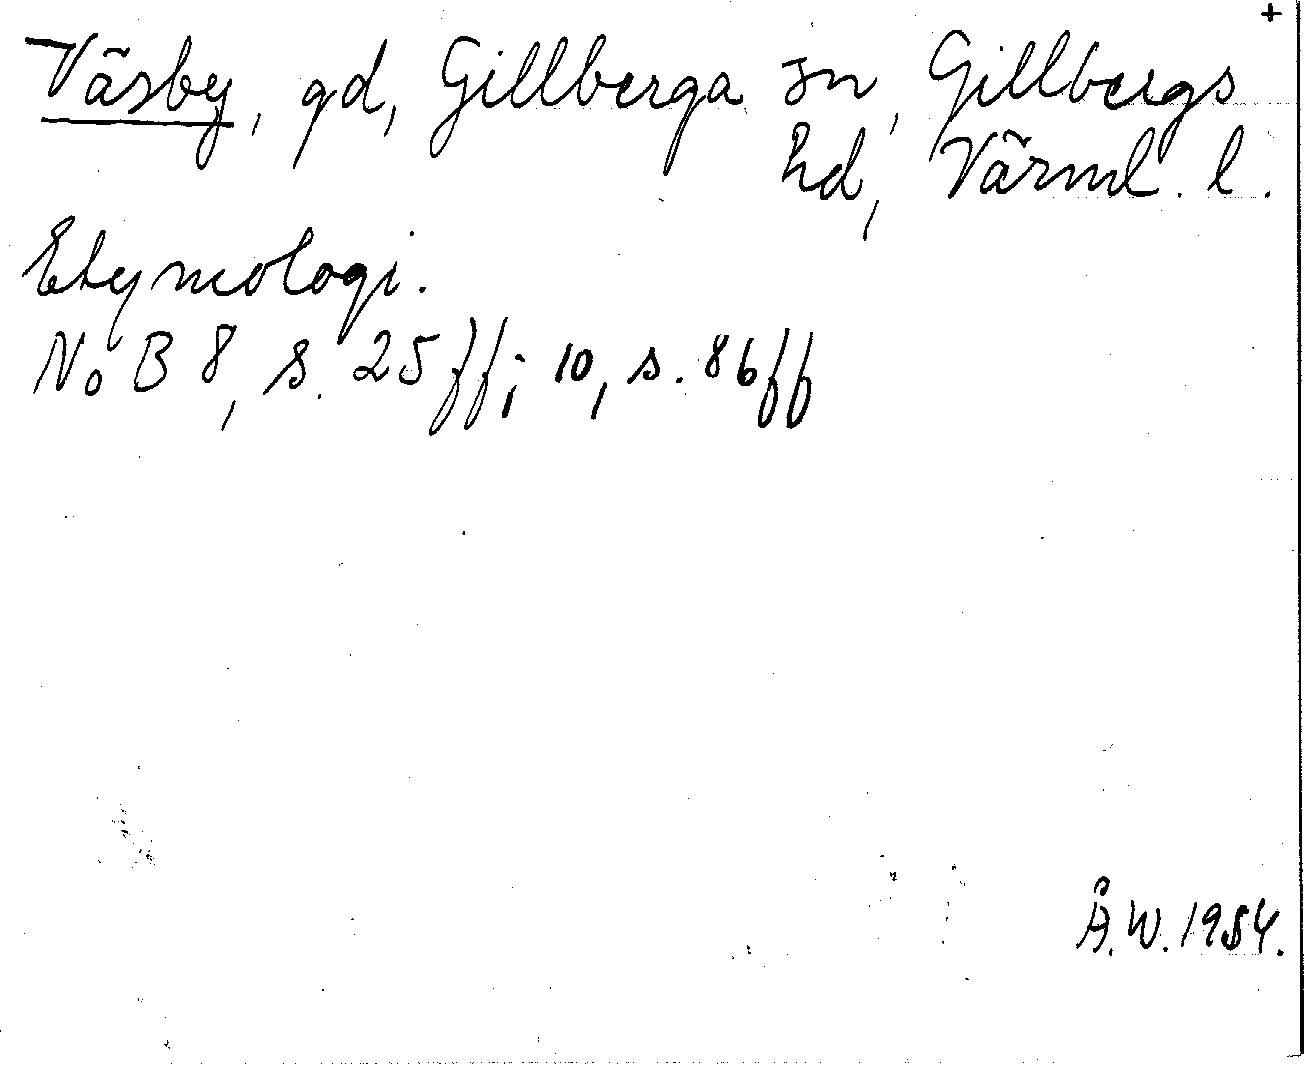 +
Väsby, gd, Gillberga sn, Gillbergs
hd, Värml. l.
Etymologi.
NoB 8, s. 25 ff; 10, s. 86 ff
Å.W. 1954.